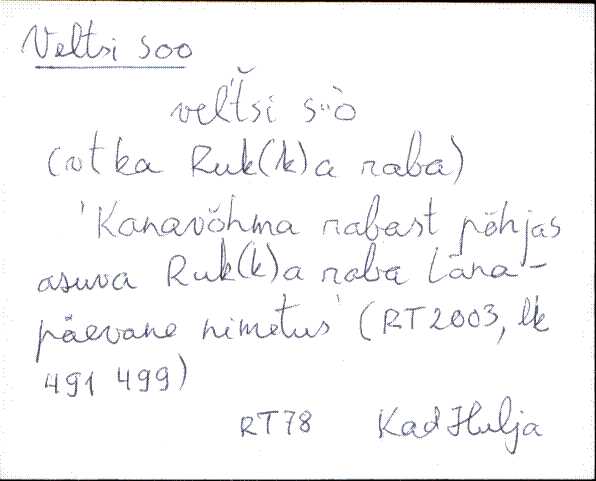 Veltsi soo
veľtši s͔ò
(vt ka Ruk(k)a raba)
'Kanavõhma rabast põhjas
asuva Ruk(k)a raba täna-
päevane nimetus' (RT 2003, lk
491 499)
RT78 Kad Hulja